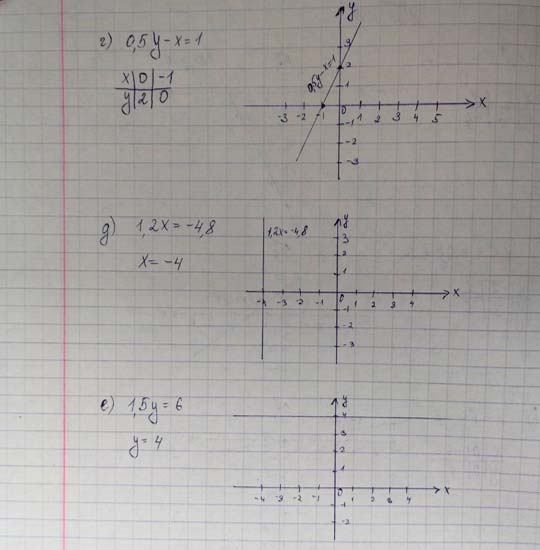 г) 0,5y-x=1
x 0 -1
y 2 0
y
3
2
1
0,5y-x=1
-3 -2 -1 0 1 2 3 4 5 x
-1
-2
-3
д) 1,2x=-4,8
x=-4
1,2x=-4,8
y
3
2
1
-4 -3 -2 -1 0 1 2 3 4 x
-1
-2
-3
е) 1,5y=6
y=4
y
4
3
2
1
-4 -3 -2 -1 0 1 2 3 4 x
-1
-2